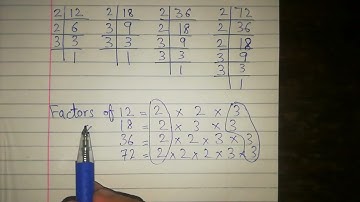 2 | 12   2 | 18   2 | 36   2 | 72
2 | 6   3 | 9   2 | 18   2 | 36
3 | 3   3 | 3   3 | 9   2 | 18
1   1   3 | 3   3 | 9
1   3 | 3
1
Factors of 12 = 2 × 2 × 3
18 = 2 × 3 × 3
36 = 2 × 2 × 3 × 3
72 = 2 × 2 × 2 × 3 × 3